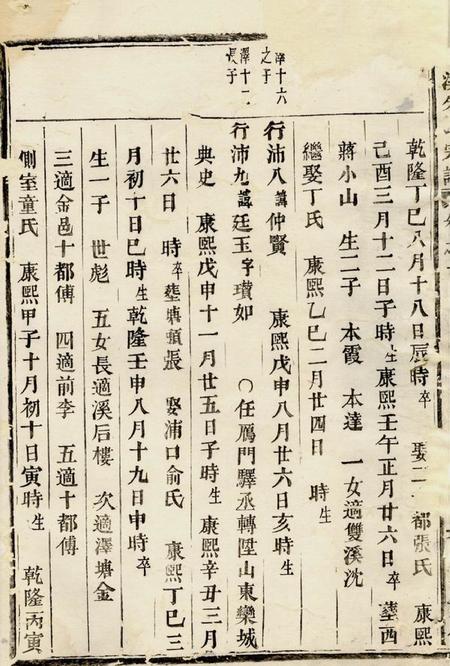 乾隆丁巳八月十八日辰時卒 娶二 都張氏 康熙
己酉三月十二日子時生康熙壬午正月廿六日卒 塟西
蔣小山 生二子 本霞 本達 一女適雙溪沈
繼娶丁氏 康熙乙巳二月廿四日 時生
澤十六之子
行沛八諱仲賢 康熙戊申八月廿六日亥時生
澤十一長子
行沛九諱廷玉字瓚如 〇任鴈門驛丞轉陞山東欒城
典史 康熙戊申十一月廿五日子時生 康熙辛丑三月
廿六日 時卒塟塘頭張 娶浦口俞氏 康熙丁巳三
月初十日巳時生乾隆壬申八月十九日申時卒
生一子 世彪 五女長適溪后樓 次適澤塘金
三適金邑十都傅 四適前李 五適十都傅
側室童氏 康熙甲子十月初十日寅時生 乾隆丙寅